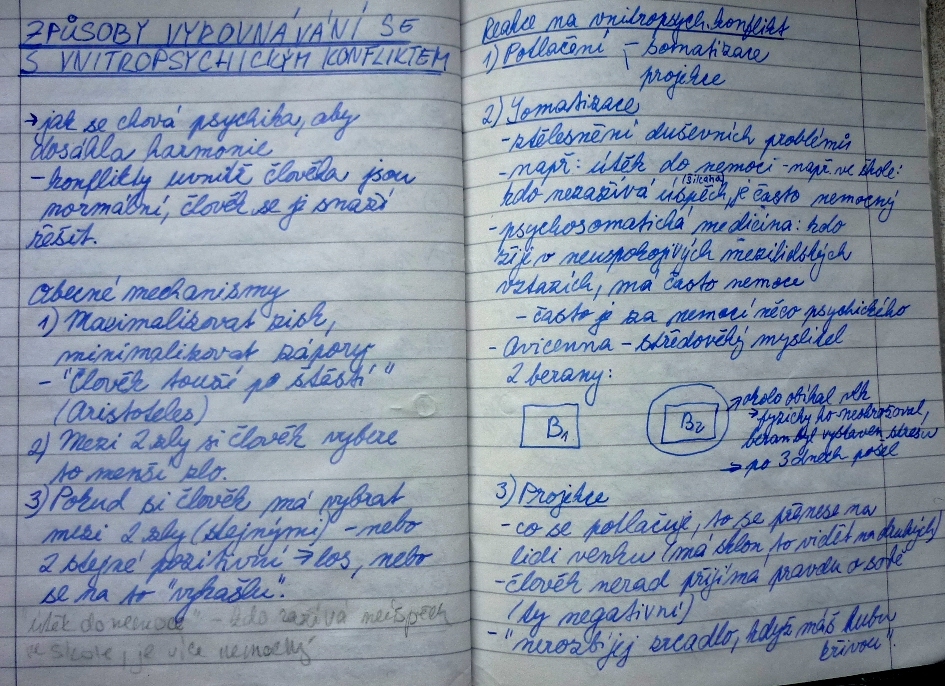 ZPŮSOBY VYROVNÁVÁNÍ SE
S VNITROPSYCHICKÝM KONFLIKTEM
→ jak se chová psychika, aby
dosáhla harmonie
- konflikty uvnitř člověka jsou
normální, člověk se je snaží
řešit.
Obecné mechanismy
1) Maximalizovat zisk,
minimalizovat zápory
- "Člověk touží po štěstí"
(Aristoteles)
2) Mezi 2 zly si člověk vybere
to menší zlo.
3) Pokud si člověk má vybrat
mezi 2 zly (stejnými) - nebo
2 stejné pozitivní → los, nebo
se na to "vykašlu".
"útěk do nemoce" - kdo zažívá neúspěch
ve škole, je více nemocný
Reakce na vnitropsych. konflikt
1) Potlačení - somatizace
projekce
2) Somatizace
- ztělesnění duševních problémů
- např: útěk do nemoci - např ve škole:
(šikana)
kdo nezažívá úspěch, je často nemocný
- psychosomatická medicína: kdo
žije v neuspokojivých mezilidských
vztazích, má často nemoce
- často je za nemocí něco psychického
- Avicenna - středověký myslitel
2 berany:
B1
B2
→ okolo obíhal vlk
→ fyzicky ho neohrožoval,
beran byl vystaven stresu
→ po 3 dnech pošel
3) Projekce
- co se potlačuje, to se přenese na
lidi venku (má sklon to vidět na druhých)
- člověk nerad přijímá pravdu o sobě
(ty negativní)
- "nerozbíjej zrcadlo, když máš hubu
křivou".